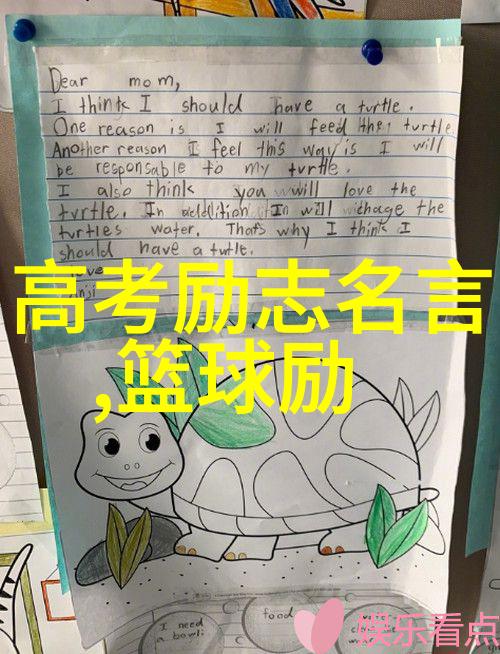 Dear mom,
I think I should have a turtle.
One reason is I will feed the turtle
Another reason I feel this way is I will
be responsable to my turtle.
I also think you will love the
turtle. In addition I will chage the
turtles water. Thats why I think I
should have a turtle.
love
高考励志名言
,篮球励
I need
a bowl
food
娱乐看点